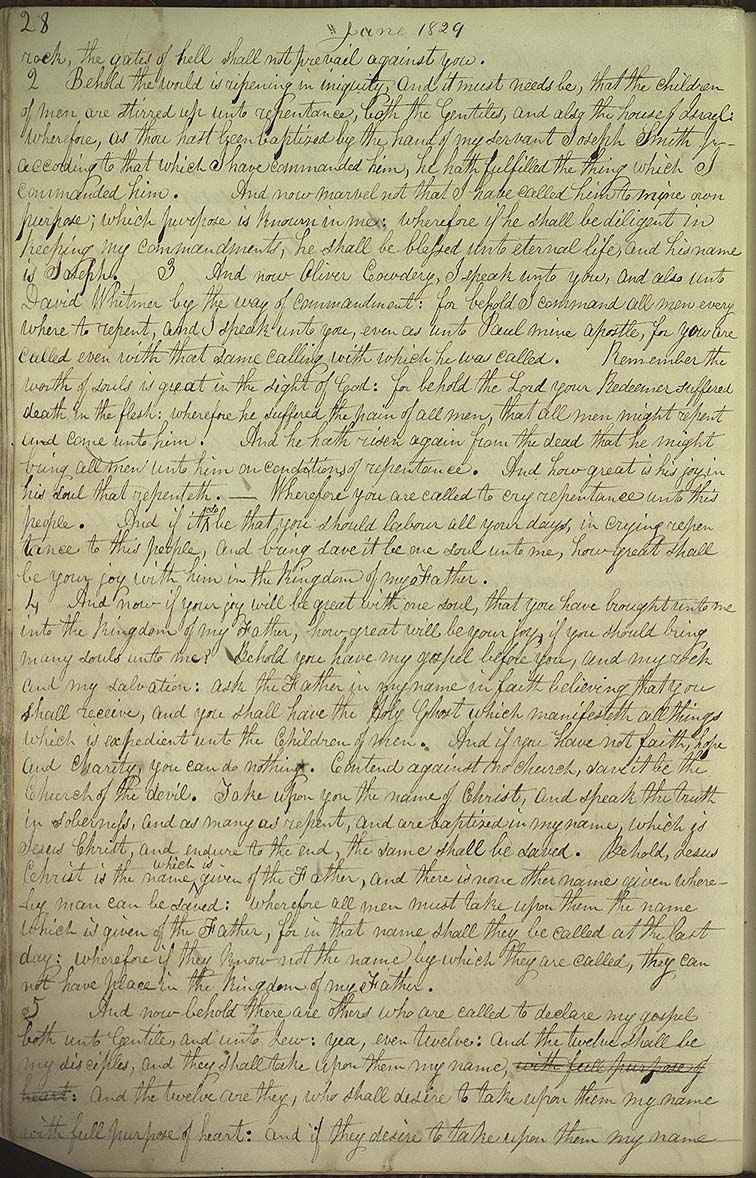 28
June 1829
rock, the gates of hell shall not prevail against you.
2 Behold the world is ripening in iniquity, and it must needs be, that the children
of men, are stirred up unto repentance, both the Gentiles, and also the house of Israel:
wherefore, as thou hast been baptised by the hand of my servant Joseph Smith Jr—
according to that which I have commanded him, he hath fulfilled the thing which I
commanded him. And now marvel not that I have called him to mine own
purpose; which purpose is known in me: wherefore if he shall be diligent in
keeping my commandments, he shall be blessed unto eternal life, and his name
is Joseph. 3 And now Oliver Cowdery, I speak unto you, and also unto
David Whitmer by the way of commandment: for behold I command all men every
where to repent, and I speak unto you, even as unto Paul mine apostle, for you are
called even with that same calling with which he was called. Remember the
worth of souls is great in the sight of God: for behold the Lord your Redeemer suffered
death in the flesh: wherefore he suffered the pain of all men, that all men might repent
and come unto him. And he hath risen again from the dead that he might
bring all men unto him on conditions of repentance. And how great is his joy in
his soul that repenteth. — Wherefore you are called to cry repentance unto this
people. And if it so be that you should labour all your days, in crying repen
tance to this people, and bring save it be one soul unto me, how great shall
be your joy with him in the Kingdom of my Father.
4 And now if your joy will be great with one soul, that you have brought unto me
into the Kingdom of my Father, how great will be your joy, if you should bring
many souls unto me? Behold you have my gospel before you, and my rock
and my salvation: ask the Father in my name in faith believing that you
shall receive, and you shall have the Holy Ghost which manifesteth all things
which is expedient unto the Children of men. And if you have not faith, hope
and Charity, you can do nothing. Contend against no church, save it be the
Church of the devil. Take upon you the name of Christ, and speak the truth
in soberness, and as many as repent, and are baptized in my name, which is
Jesus Christ, and endure to the end, the same shall be saved. Behold, Jesus
Christ is the name which is given of the Father, and there is none other name given where-
-by man can be saved: wherefore all men must take upon them the name
which is given of the Father, for in that name shall they be called at the last
day: wherefore if they know not the name by which they are called, they can
not have place in the Kingdom of my Father.
5 And now behold there are others who are called to declare my gospel
both unto Gentile, and unto Jew: yea, even twelve: and the twelve shall be
my disciples, and they shall take upon them my name, with full purpose of
heart: and the twelve are they, who shall desire to take upon them my name
with full purpose of heart: and if they desire to take upon them my name